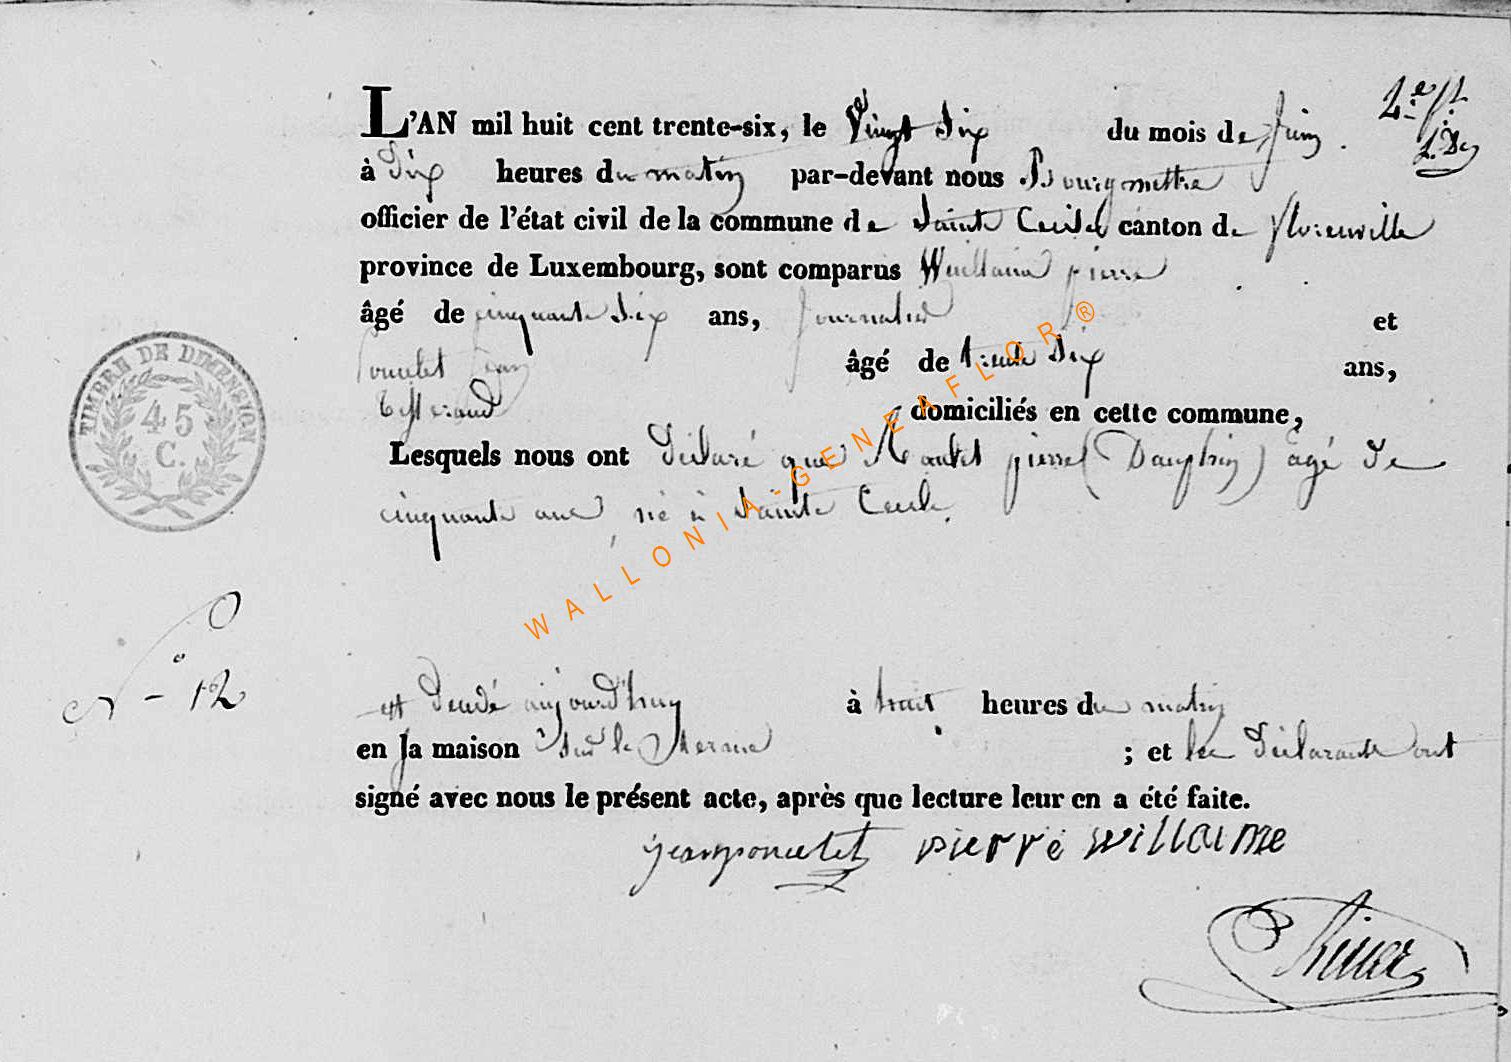 L'AN mil huit cent trente-six, le Vingt Six du mois de Juin.
à Dix heures du matin par-devant nous Bourgmettre
officier de l'état civil de la commune de Sainte Cecile canton de florenville
province de Luxembourg, sont comparus Willaime pierre
âgé de cinquante Six ans, Journalier et
Poncelet Jean âgé de trente Six ans,
tisserand domiciliés en cette commune,
Lesquels nous ont Déclaré que pierre (Dauphin) agé de
cinquante ans né à Sainte Cecile.
TIMBRE DE DIMENSION
45
C.
N° 12
est Decedé aujourd'huy à huit heures du matin
en sa maison ; et les Déclarants ont
signé avec nous le présent acte, après que lecture leur en a été faite.
jean poncelet pierre willaime
WALLONIA-GENEAFLOR®